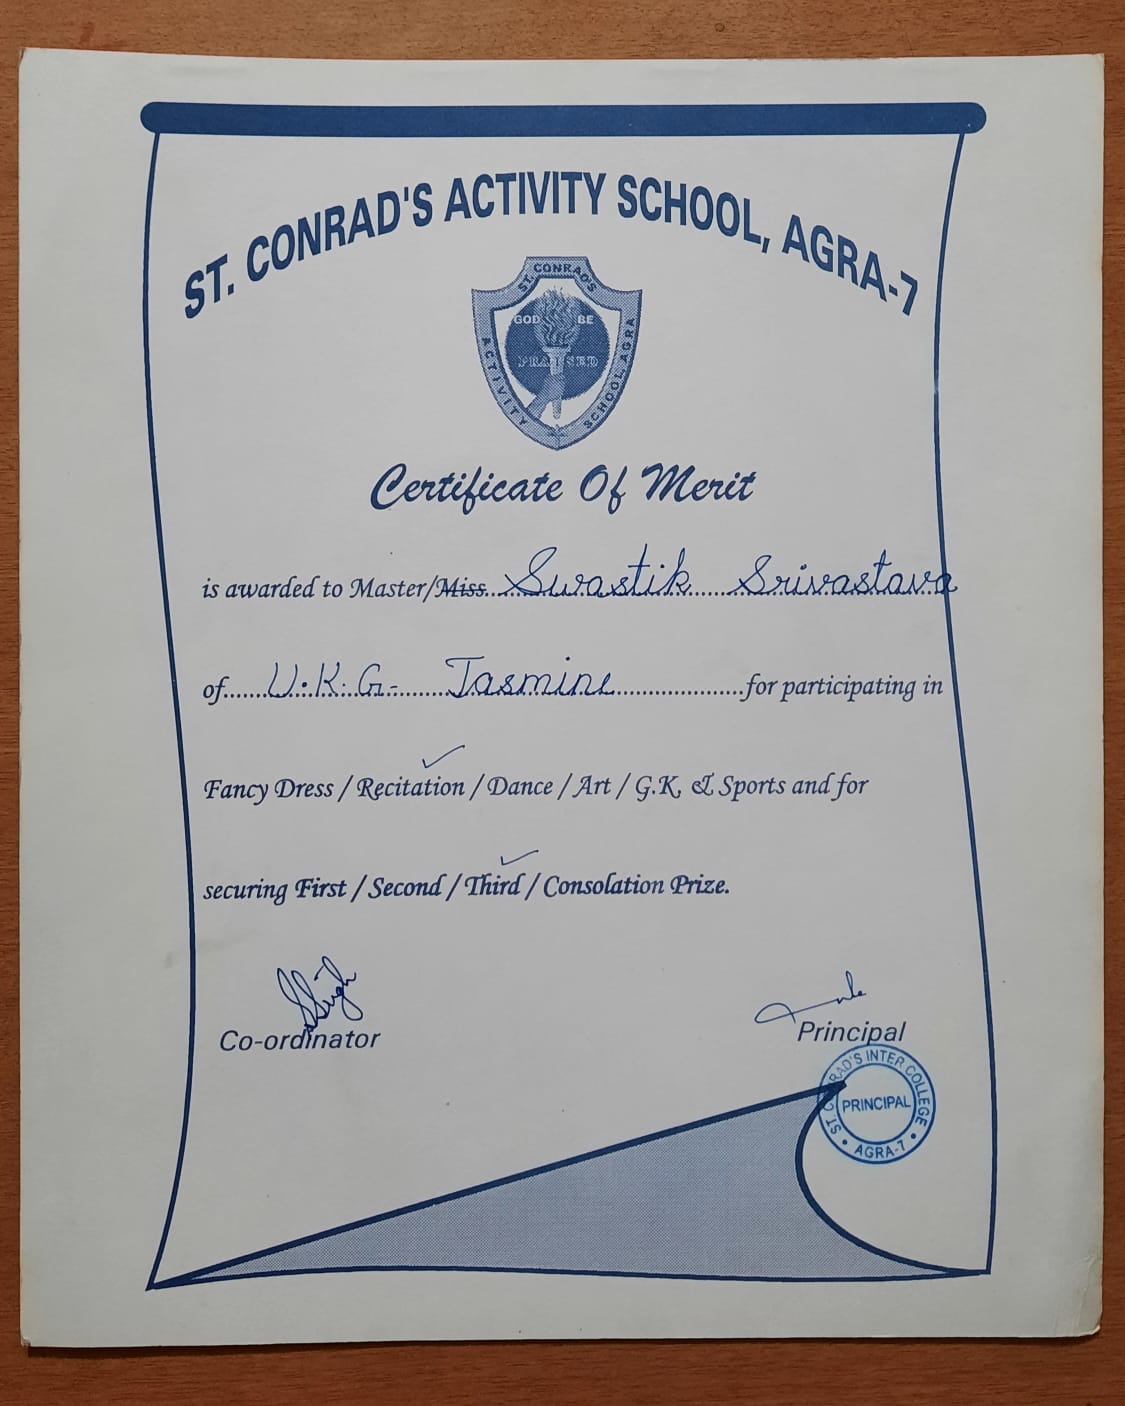 ST. CONRAD'S ACTIVITY SCHOOL, AGRA-7
ST. CONRAD'S
GOD BE
PRAISED
ACTIVITY
SCHOOL, AGRA
Certificate Of Merit
is awarded to Master/Miss. Swastik Srivastava
of U.K.G- Jasmine for participating in
Fancy Dress / Recitation / Dance / Art / G.K, & Sports and for
securing First / Second / Third / Consolation Prize.
Co-ordinator
Principal
ST. CONRAD'S INTER COLLEGE
PRINCIPAL
• AGRA-7 •